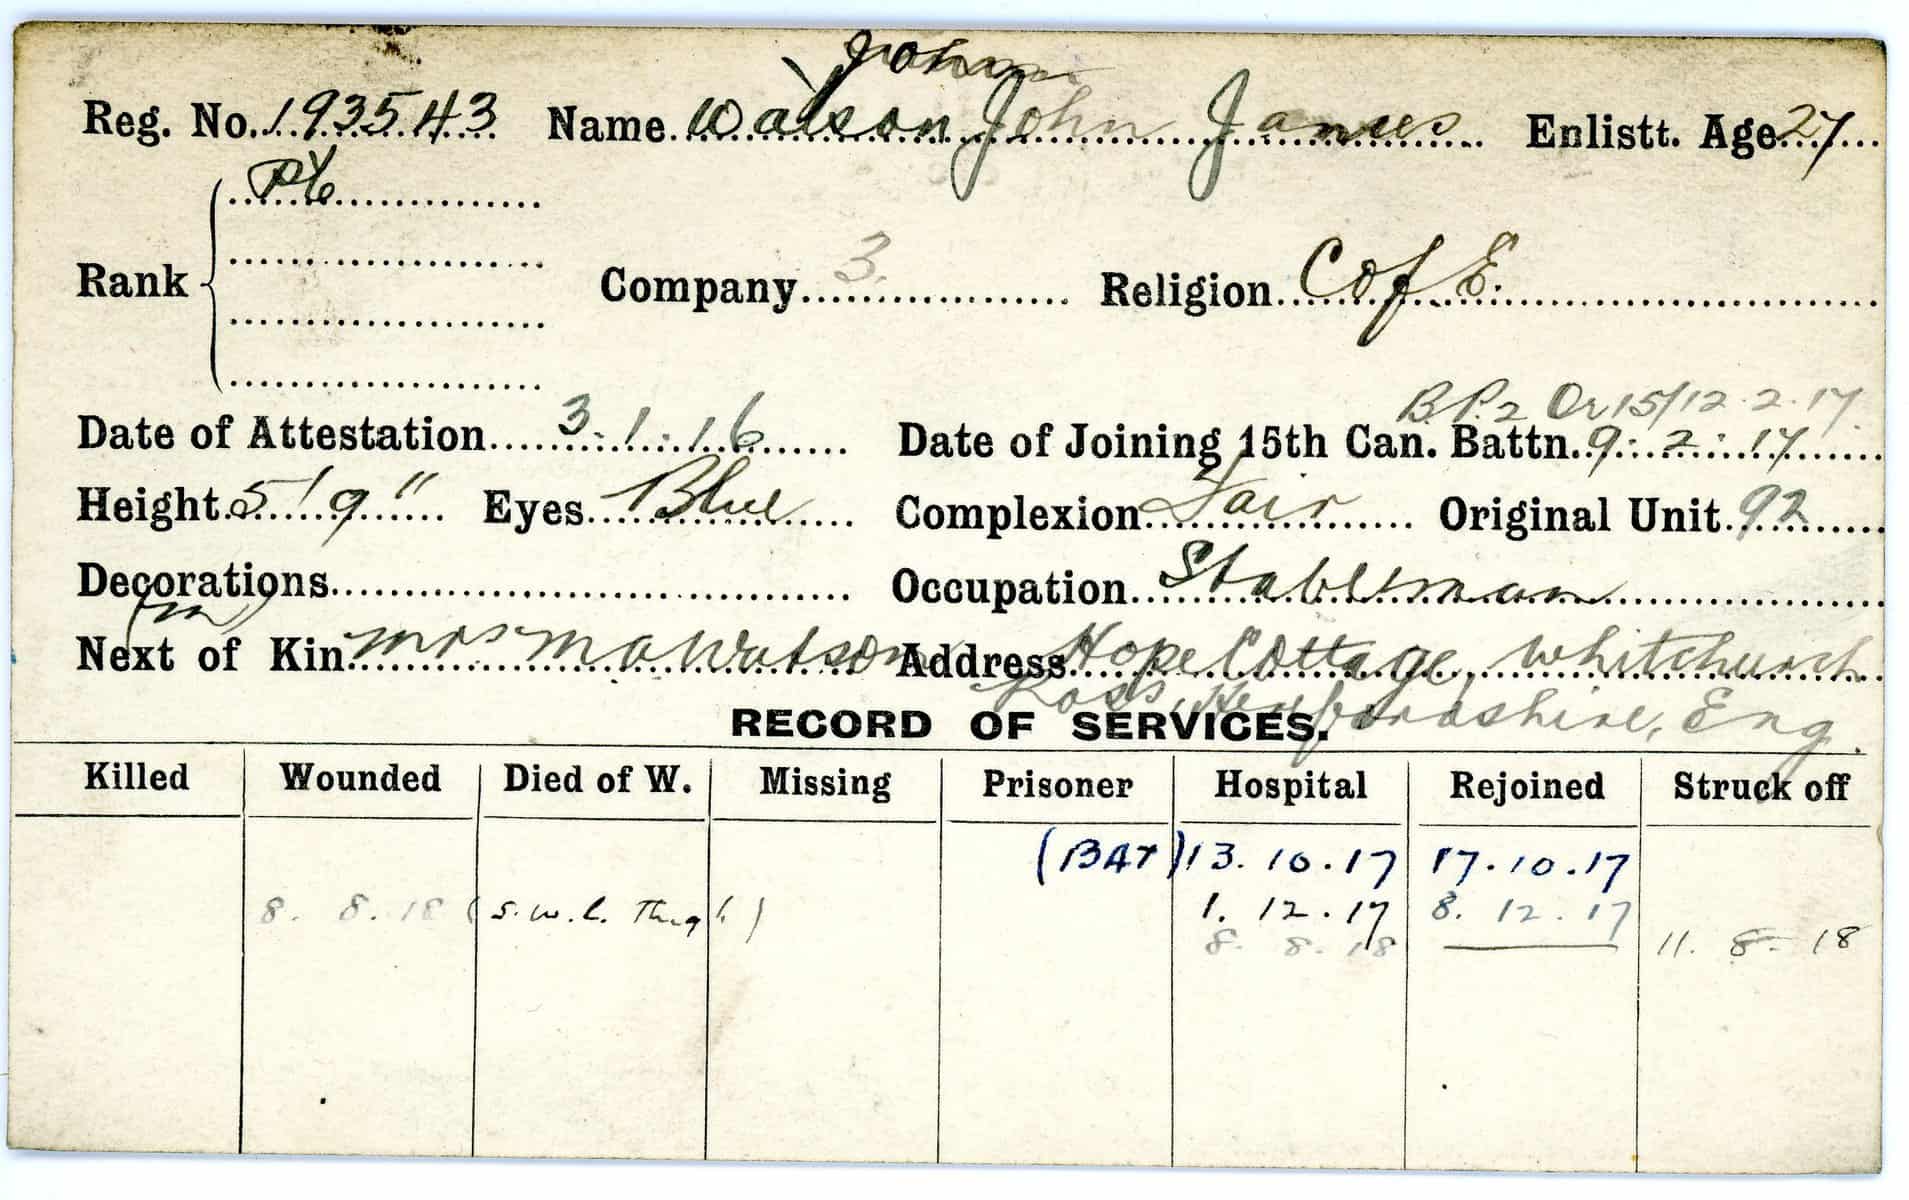 John
Reg. No. 193543 Name Watson John James Enlistt. Age 27
Pte
Rank Company 3. Religion C of E.
B.P.2 Or 15/12.2.17
Date of Attestation 3.1.16 Date of Joining 15th Can. Battn. 9.2.17
Height 5' 9" Eyes Blue Complexion Fair Original Unit 92
Decorations Occupation Stableman
(m)
Next of Kin Mrs M A Watson Address Hope Cottage, Whitchurch
Ross, Herefordshire, Eng.
RECORD OF SERVICES.
Killed Wounded Died of W. Missing Prisoner Hospital Rejoined Struck off
(BAT) 13.10.17 17.10.17
8. 8. 18 (S.W.L. Thigh) 1. 12. 17 8. 12. 17
8. 8. 18 11. 8. 18